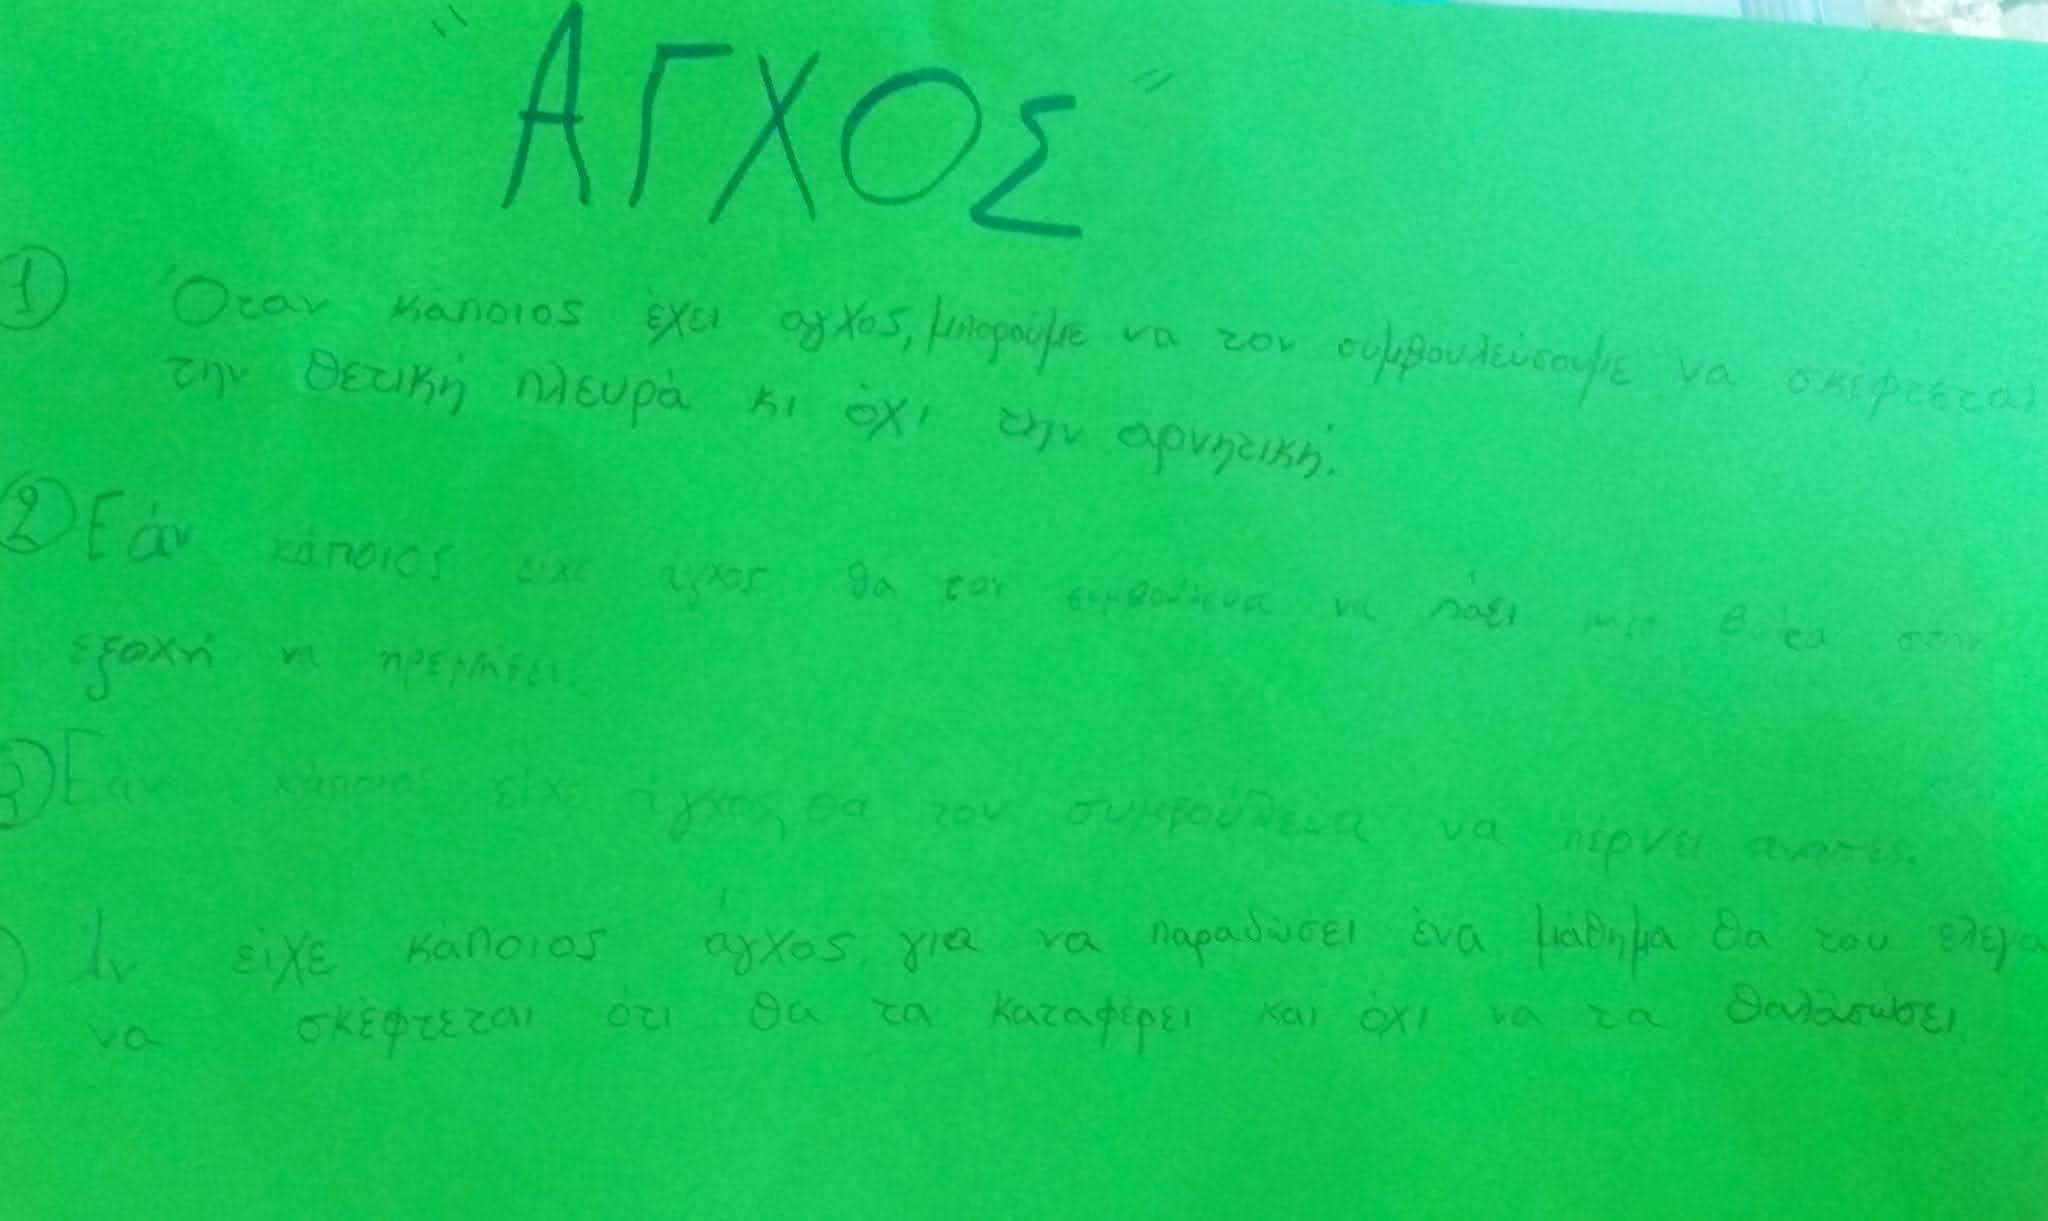 "ΑΓΧΟΣ"
① Όταν κάποιος έχει αγχος, μπορούμε να τον συμβουλεύσουμε να σκέφτεται
την θετική πλευρά κι όχι την αρνητική.
② Εάν κάποιος είχε άγχος θα τον συμβούλευα να πάει μια στην
εξοχή να ηρεμήσει.
③ Εάν κάποιος είχε άγχος, θα τον συμβούλευα να πέρνει ανάσες.
Άν είχε κάποιος άγχος για να παραδώσει ένα μάθημα θα του έλεγα
να σκέφτεται ότι θα τα καταφέρει και όχι να τα θαλασώσει